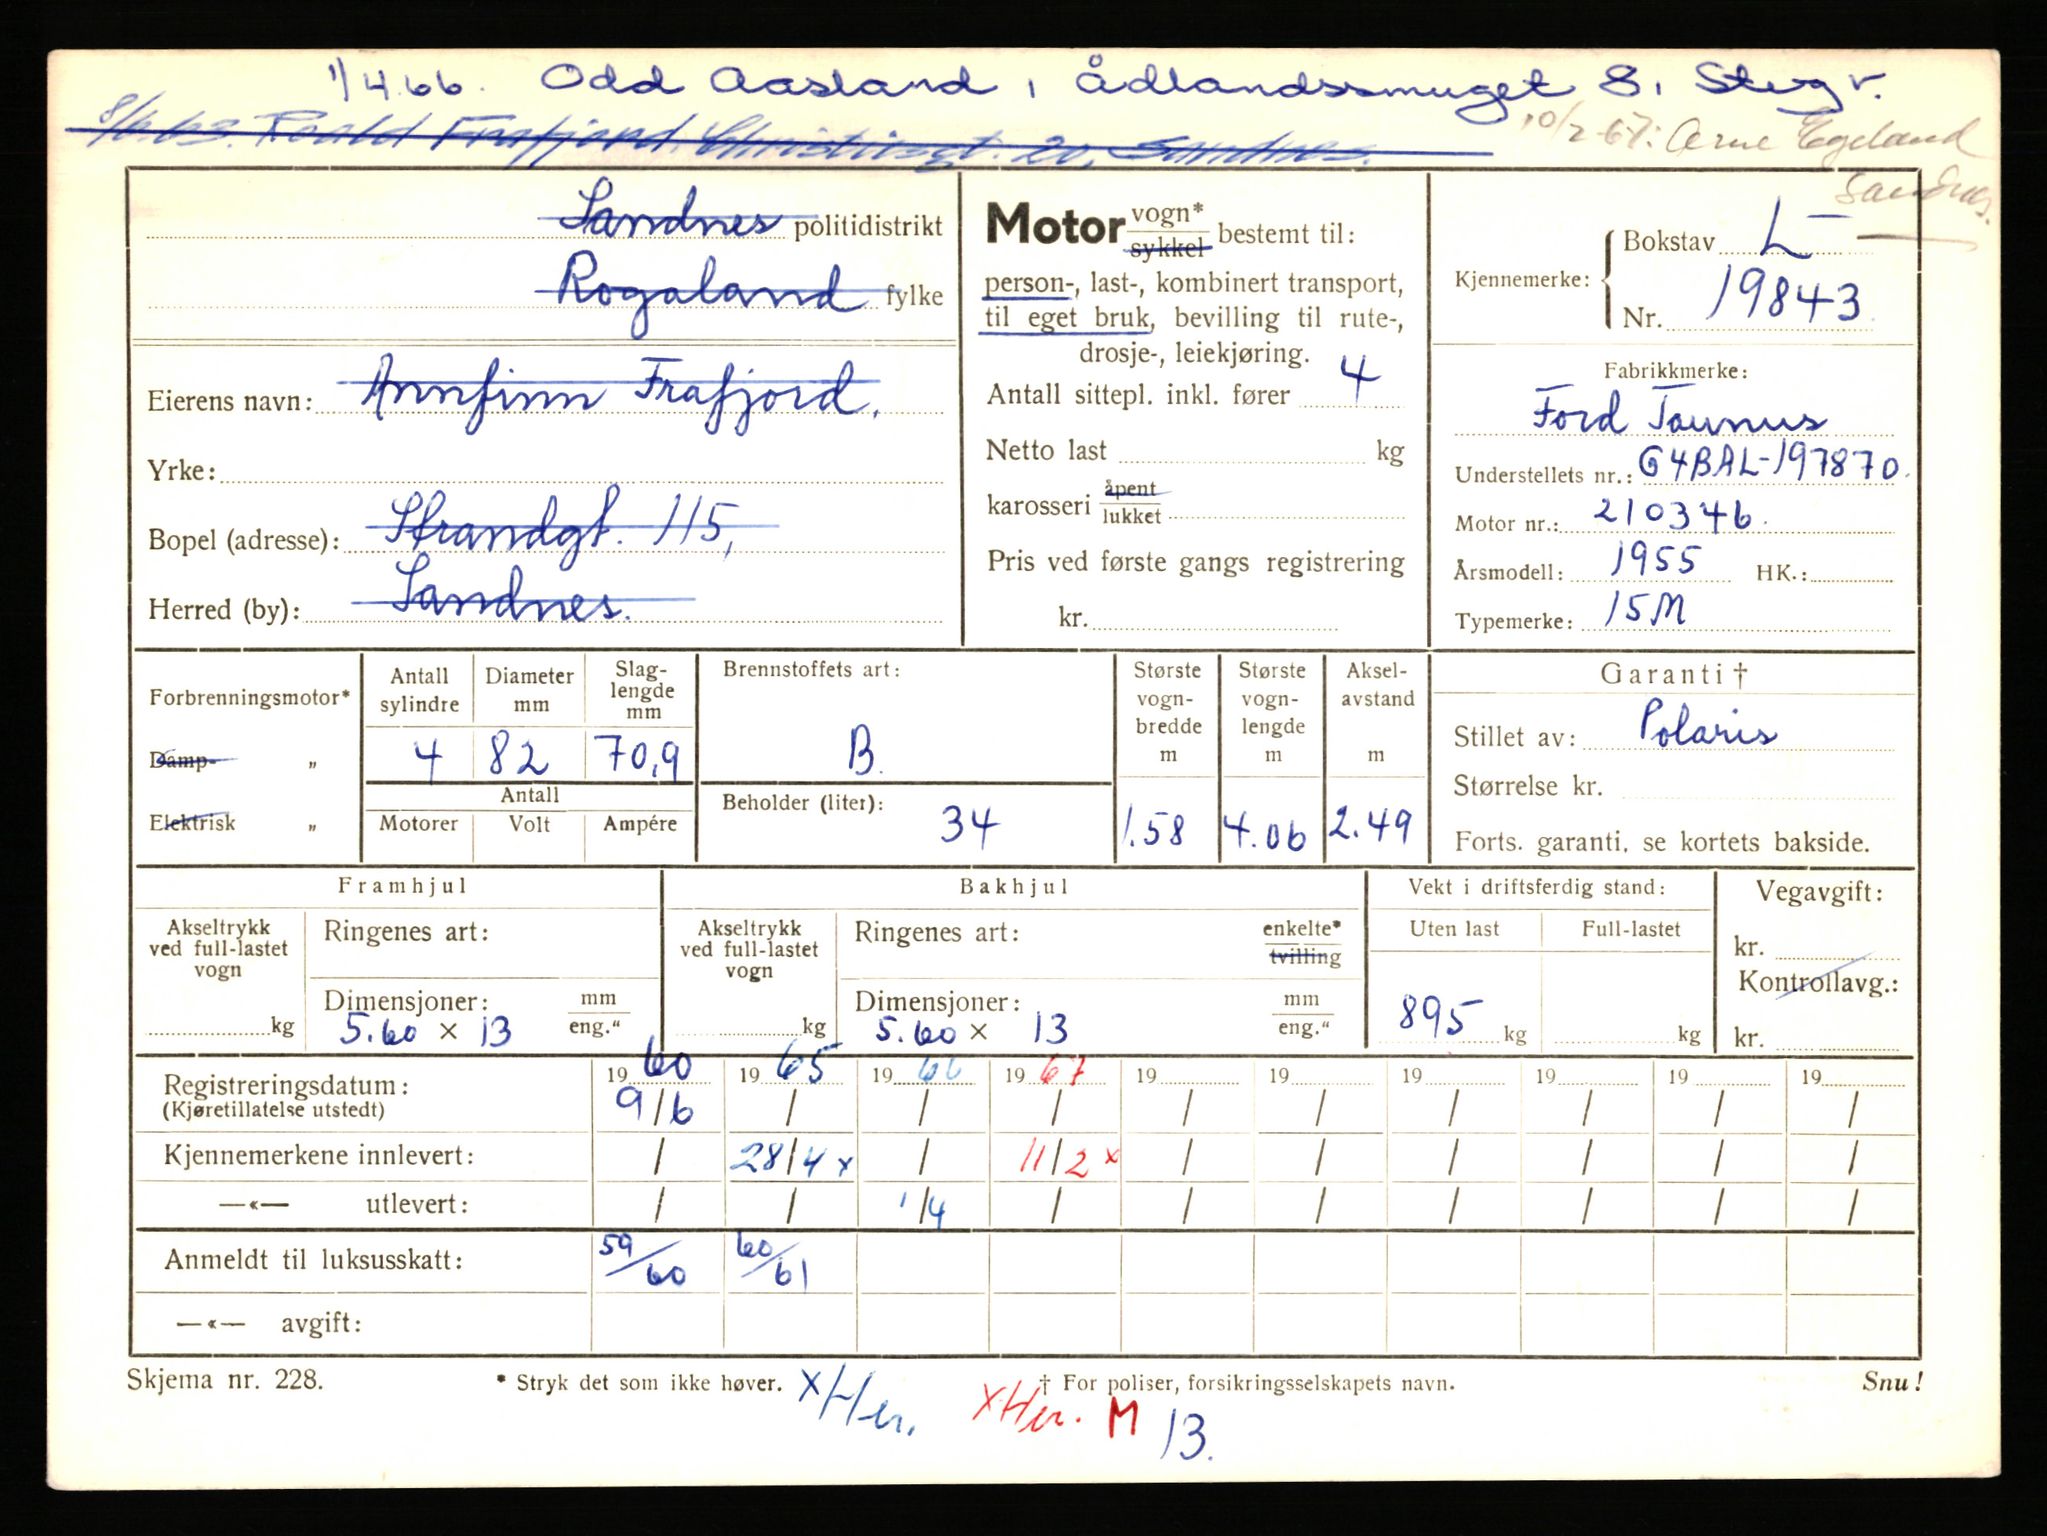 1/4.66. Odd Aasland, Ådlandssmuget 8, Stvgr.
8/6.63. Roald Frafjord, Christiesgt. 20, Sandnes.
10/2-67: Arne Egeland
Sandnes.
Sandnes politidistrikt
Rogaland fylke
Eierens navn: Annfinn Frafjord.
Yrke:
Bopel (adresse): Strandgt. 115,
Herred (by): Sandnes.
Motor vogn* sykkel bestemt til:
person-, last-, kombinert transport,
til eget bruk, bevilling til rute-,
drosje-, leiekjøring.
Antall sittepl. inkl. fører 4
Netto last kg
karosseri åpent lukket
Pris ved første gangs registrering
kr.
Kjennemerke: Bokstav L-
Nr. 19843
Fabrikkmerke:
Ford Taunus
Understellets nr.: G4BAL-197870.
Motor nr.: 210346.
Årsmodell: 1955 HK.:
Typemerke: 15M
Forbrenningsmotor*
Damp- „
Elektrisk „
Antall sylindre
4
Diameter mm
82
Slag-
lengde
mm
70,9
Antall
Motorer Volt Ampére
Brennstoffets art:
B.
Beholder (liter):
34
Største
vogn-
bredde
m
1.58
Største
vogn-
lengde
m
4.06
Aksel-
avstand
m
2.49
Garanti †
Stillet av: Polaris
Størrelse kr.
Forts. garanti, se kortets bakside.
Framhjul
Akseltrykk
ved full-lastet
vogn
kg
Ringenes art:
Dimensjoner: mm
5.60 x 13 eng."
Bakhjul
Akseltrykk
ved full-lastet
vogn
kg
Ringenes art: enkelte*
tvilling
Dimensjoner: mm
5.60 x 13 eng."
Vekt i driftsferdig stand:
Uten last Full-lastet
895 kg kg
Vegavgift:
kr.
Kontrollavg.:
kr.
Registreringsdatum: 1960 1965 1966 1967 19 19 19 19 19 19
(Kjøretillatelse utstedt) 9/6 / / / / / / / / /
Kjennemerkene innlevert: / 28/4 x / 11/2 x / / / / / /
—«— utlevert: / / 1/4 / / / / / / /
Anmeldt til luksusskatt: 59/60 60/61
—«— avgift:
Skjema nr. 228. * Stryk det som ikke høver. † For poliser, forsikringsselskapets navn. Snu!
x Her. x Her. M 13.